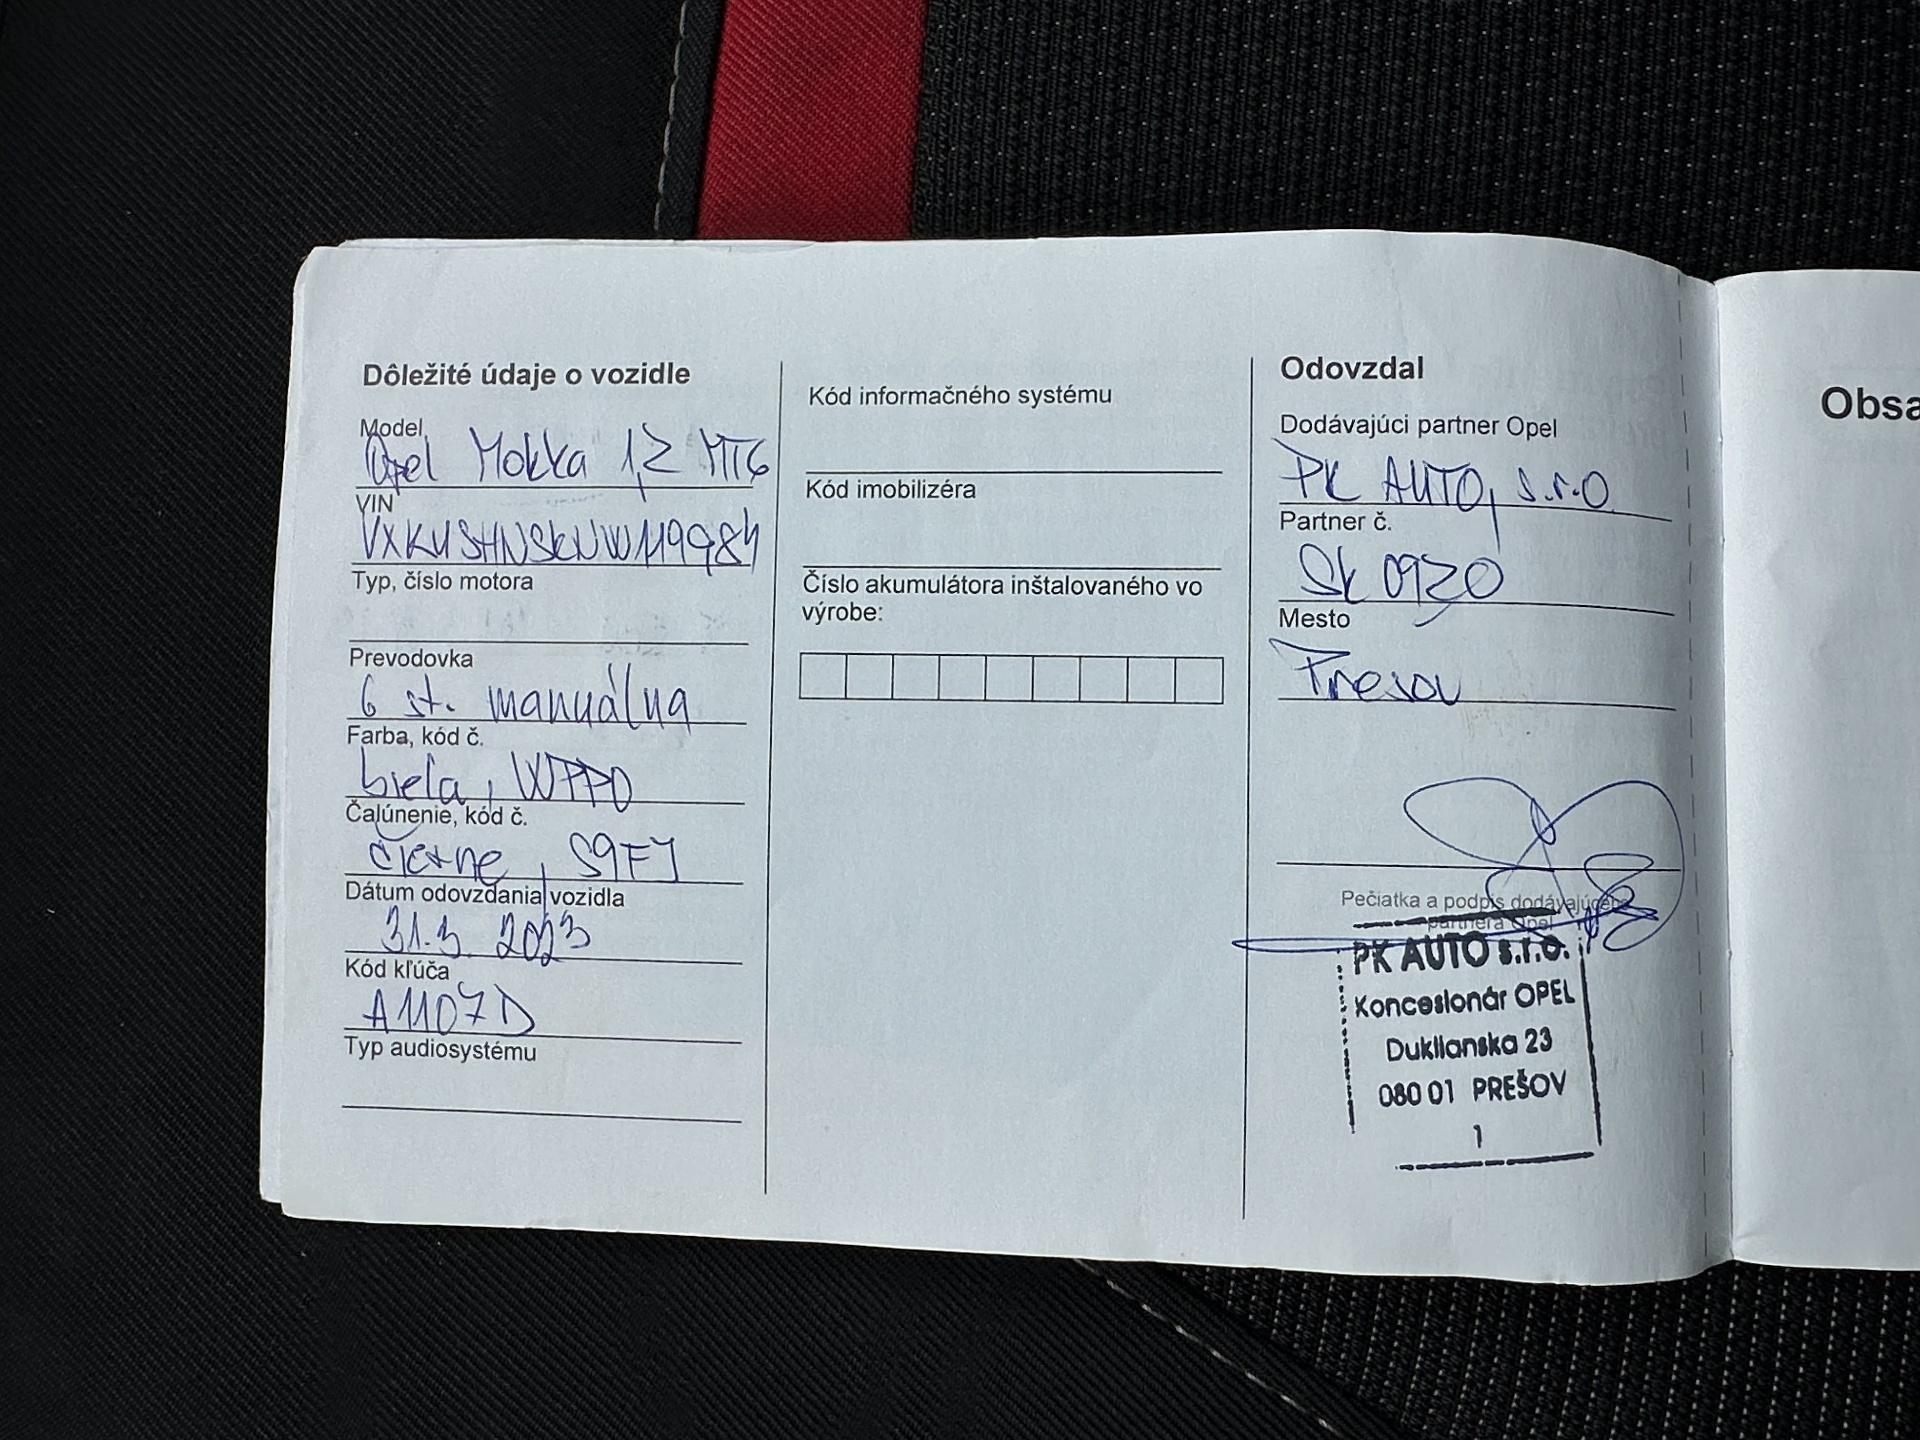 Dôležité údaje o vozidle
Model
Opel Mokka 1,2 MT6
VIN
VXKUSHNSKNW119984
Typ, číslo motora
Prevodovka
6 st. manuálna
Farba, kód č.
biela, WPP0
Čalúnenie, kód č.
čierne, S9FJ
Dátum odovzdania vozidla
31.3. 2023
Kód kľúča
A1107D
Typ audiosystému
Kód informačného systému
Kód imobilizéra
Číslo akumulátora inštalovaného vo
výrobe:
Odovzdal
Dodávajúci partner Opel
PK AUTO, s.r.o.
Partner č.
SK 0920
Mesto
Presov
Pečiatka a podpis dodávajúceho
partnera Opel
PK AUTO s.r.o.
Koncesionár OPEL
Duklianska 23
080 01 PREŠOV
1
Obsa